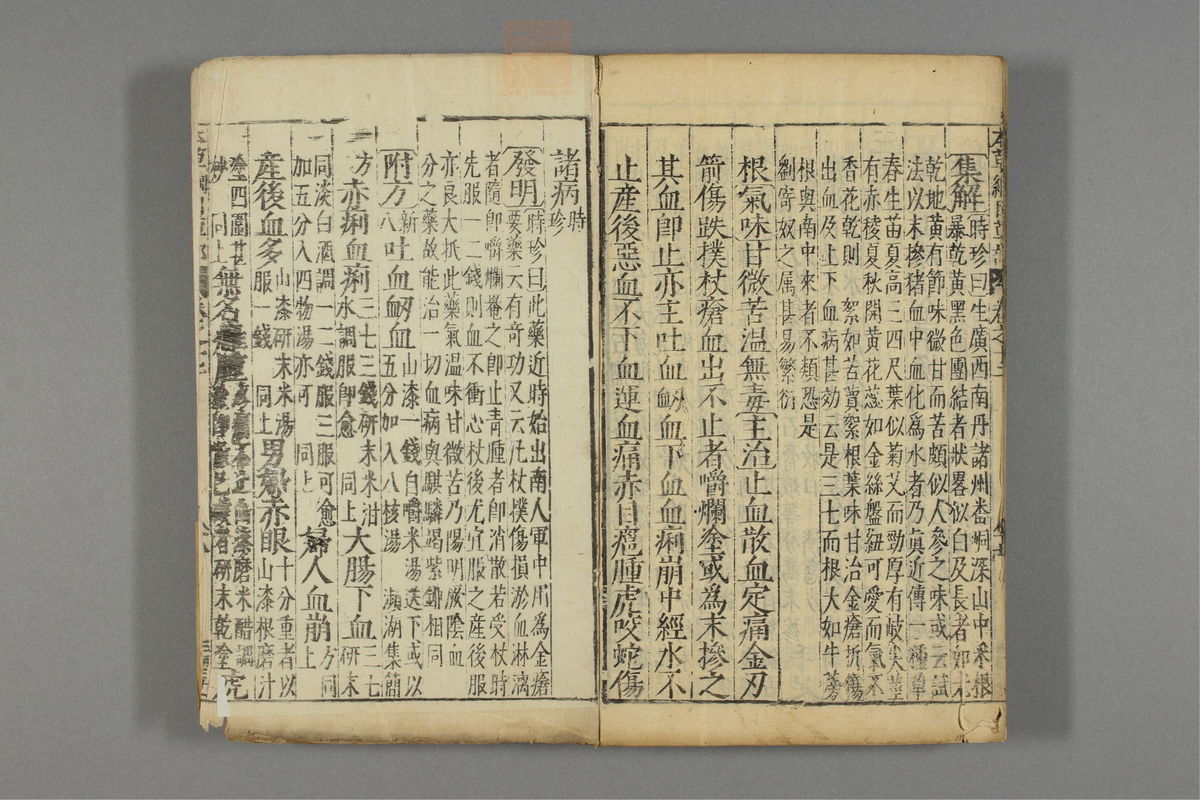 集解時珍曰生廣西南丹諸州番峒深山中采根
暴乾黃黑色團結者狀畧似白及長者如老
乾地黃有節味微甘而苦頗似人參之味或云試
法以末摻猪血中血化爲水者乃真近傳一種草
春生苗夏高三四尺葉似菊艾而勁厚有歧尖莖
有赤稜夏秋開黃花蕊如金絲盤紐可愛而氣不
香花乾則絮如苦蕒絮根葉味甘治金瘡折傷
出血及上下血病甚効云是三七而根大如牛蒡
根與南中來者不類恐是
劉寄奴之属甚易繁衍
根氣味甘微苦温無毒主治止血散血定痛金刃
箭傷跌撲杖瘡血出不止者嚼爛塗或為末摻之
其血即止亦主吐血衂血下血血痢崩中經水不
止産後惡血不下血運血痛赤目癰腫虎咬蛇傷
諸病時珍
發明時珍曰此藥近時始出南人軍中用為金瘡
要藥云有奇功又云凡杖撲傷損淤血淋漓
者隨即嚼爛罨之即止青腫者即消散若受杖時
先服一二錢則血不衝心杖後尤宜服之産後服
亦良大扺此藥氣温味甘微苦乃陽明厥陰血
分之藥故能治一切血病與騏驎竭紫鉚相同
附方新八吐血衂血山漆一錢自嚼米湯送下或以
五分加入八核湯 瀕湖集簡
方赤痢血痢三七三錢研末米泔
水調服即愈 同上大腸下血三七
研末
同淡白酒調一二錢服三服可愈
加五分入四物湯亦可 同上婦人血崩方同
上
産後血多山漆研末米湯
服一錢 同上男婦赤眼十分重者以
山漆根磨汁
塗四圍甚
妙 同上無名癰腫山漆磨米醋調
者研末乾塗虎